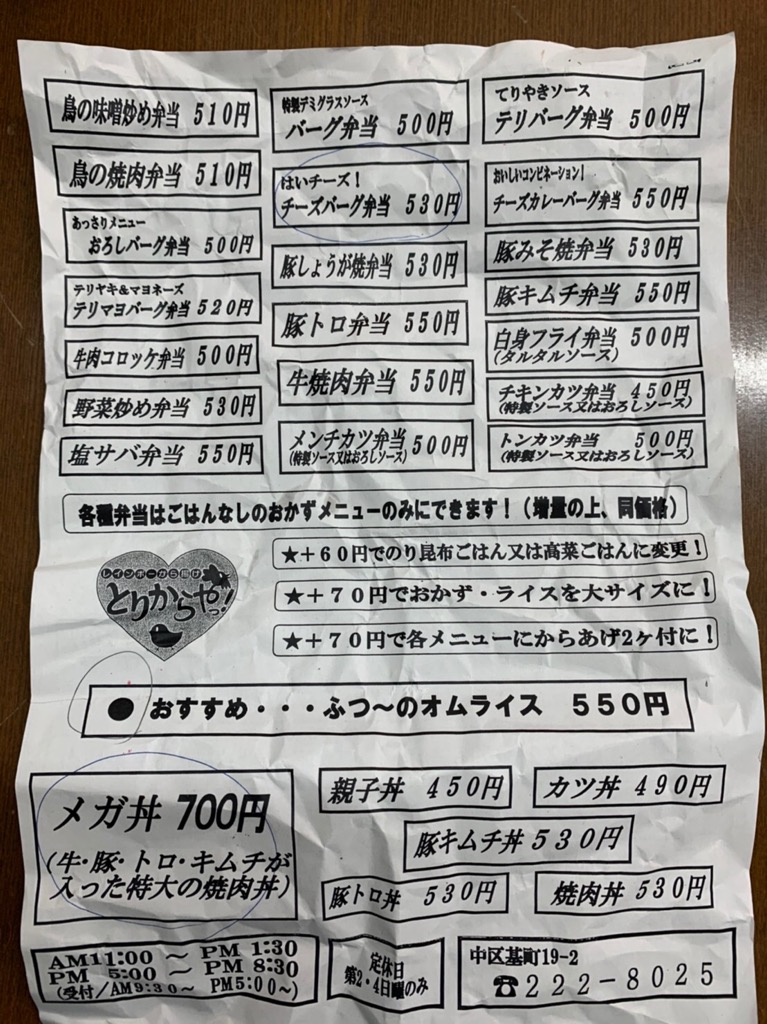 鳥の味噌炒め弁当 510円
鳥の焼肉弁当 510円
あっさりメニュー
おろしバーグ弁当 500円
テリヤキ&マヨネーズ
テリマヨバーグ弁当 520円
牛肉コロッケ弁当 500円
野菜炒め弁当 530円
塩サバ弁当 550円
特製デミグラスソース
バーグ弁当 500円
はいチーズ！
チーズバーグ弁当 530円
豚しょうが焼弁当 530円
豚トロ弁当 550円
牛焼肉弁当 550円
メンチカツ弁当 500円
(特製ソース又はおろしソース)
てりやきソース
テリバーグ弁当 500円
おいしいコンビネーション！
チーズカレーバーグ弁当 550円
豚みそ焼弁当 530円
豚キムチ弁当 550円
白身フライ弁当 500円
(タルタルソース)
チキンカツ弁当 450円
(特製ソース又はおろしソース)
トンカツ弁当 500円
(特製ソース又はおろしソース)
各種弁当はごはんなしのおかずメニューのみにできます！（増量の上、同価格）
レインボーから揚げ
とりからやっ!
★＋60円でのり昆布ごはん又は高菜ごはんに変更！
★＋70円でおかず・ライスを大サイズに！
★＋70円で各メニューにからあげ2ヶ付に！
●おすすめ・・・ふつ～のオムライス 550円
メガ丼 700円
(牛・豚・トロ・キムチが
入った特大の焼肉丼)
親子丼 450円
カツ丼 490円
豚キムチ丼 530円
豚トロ丼 530円
焼肉丼 530円
AM11:00 ～ PM 1:30
PM 5:00 ～ PM 8:30
(受付/AM9:30～ PM5:00～)
定休日
第2・4日曜のみ
中区基町19-2
☎222-8025